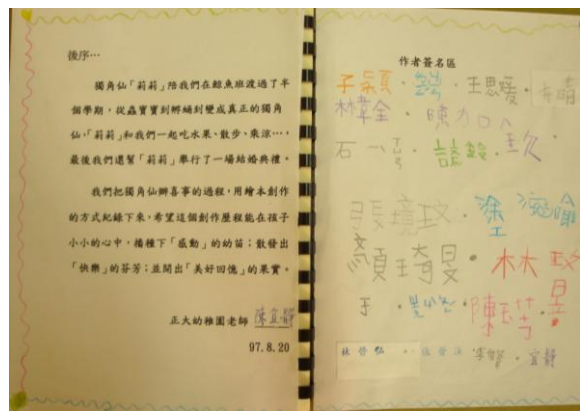 後序…
獨角仙「莉莉」陪我們在鯨魚班渡過了半
個學期,從蟲寶寶到孵蛹到變成真正的獨角
仙,「莉莉」和我們一起吃水果、散步、乘涼…,
最後我們還幫「莉莉」舉行了一場結婚典禮。
我們把獨角仙辦喜事的過程,用繪本創作
的方式紀錄下來,希望這個創作歷程能在孩子
小小的心中,播種下「感動」的幼苗;散發出
「快樂」的芬芳;並開出「美好回憶」的果實。
正大幼稚園老師 陳宜靜
97.8.20
作者簽名區
子穎・・王思媛・
林韋全・陳力・
石
張境玟・
顏琦旻・林玟昱・
陳玉芩・
・宜靜